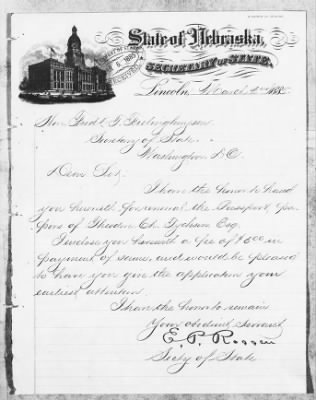 State of Nebraska,
SECRETARY OF STATE.
Lincoln, March 2nd 188
Hon Fredk F. Frelinghuysen
Secretary of State
Washington D.C.
Dear Sir,
I have the honor to hand
you herewith for renewal the Passport pa-
pers of Theodor Ch. Esq
I enclose you herewith a fee of $5.00 in
payment of same, and would be pleased
to have you give the application your
earliest attention
I have the honor to remain
Your obedient servant
E. P. Roggen
Secty of State